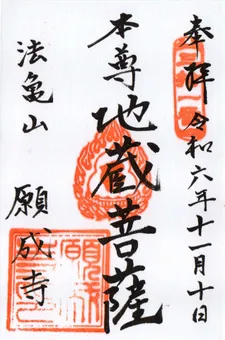 奉拝 令和六年十一月十日
本尊 地蔵菩薩
法亀山 願成寺